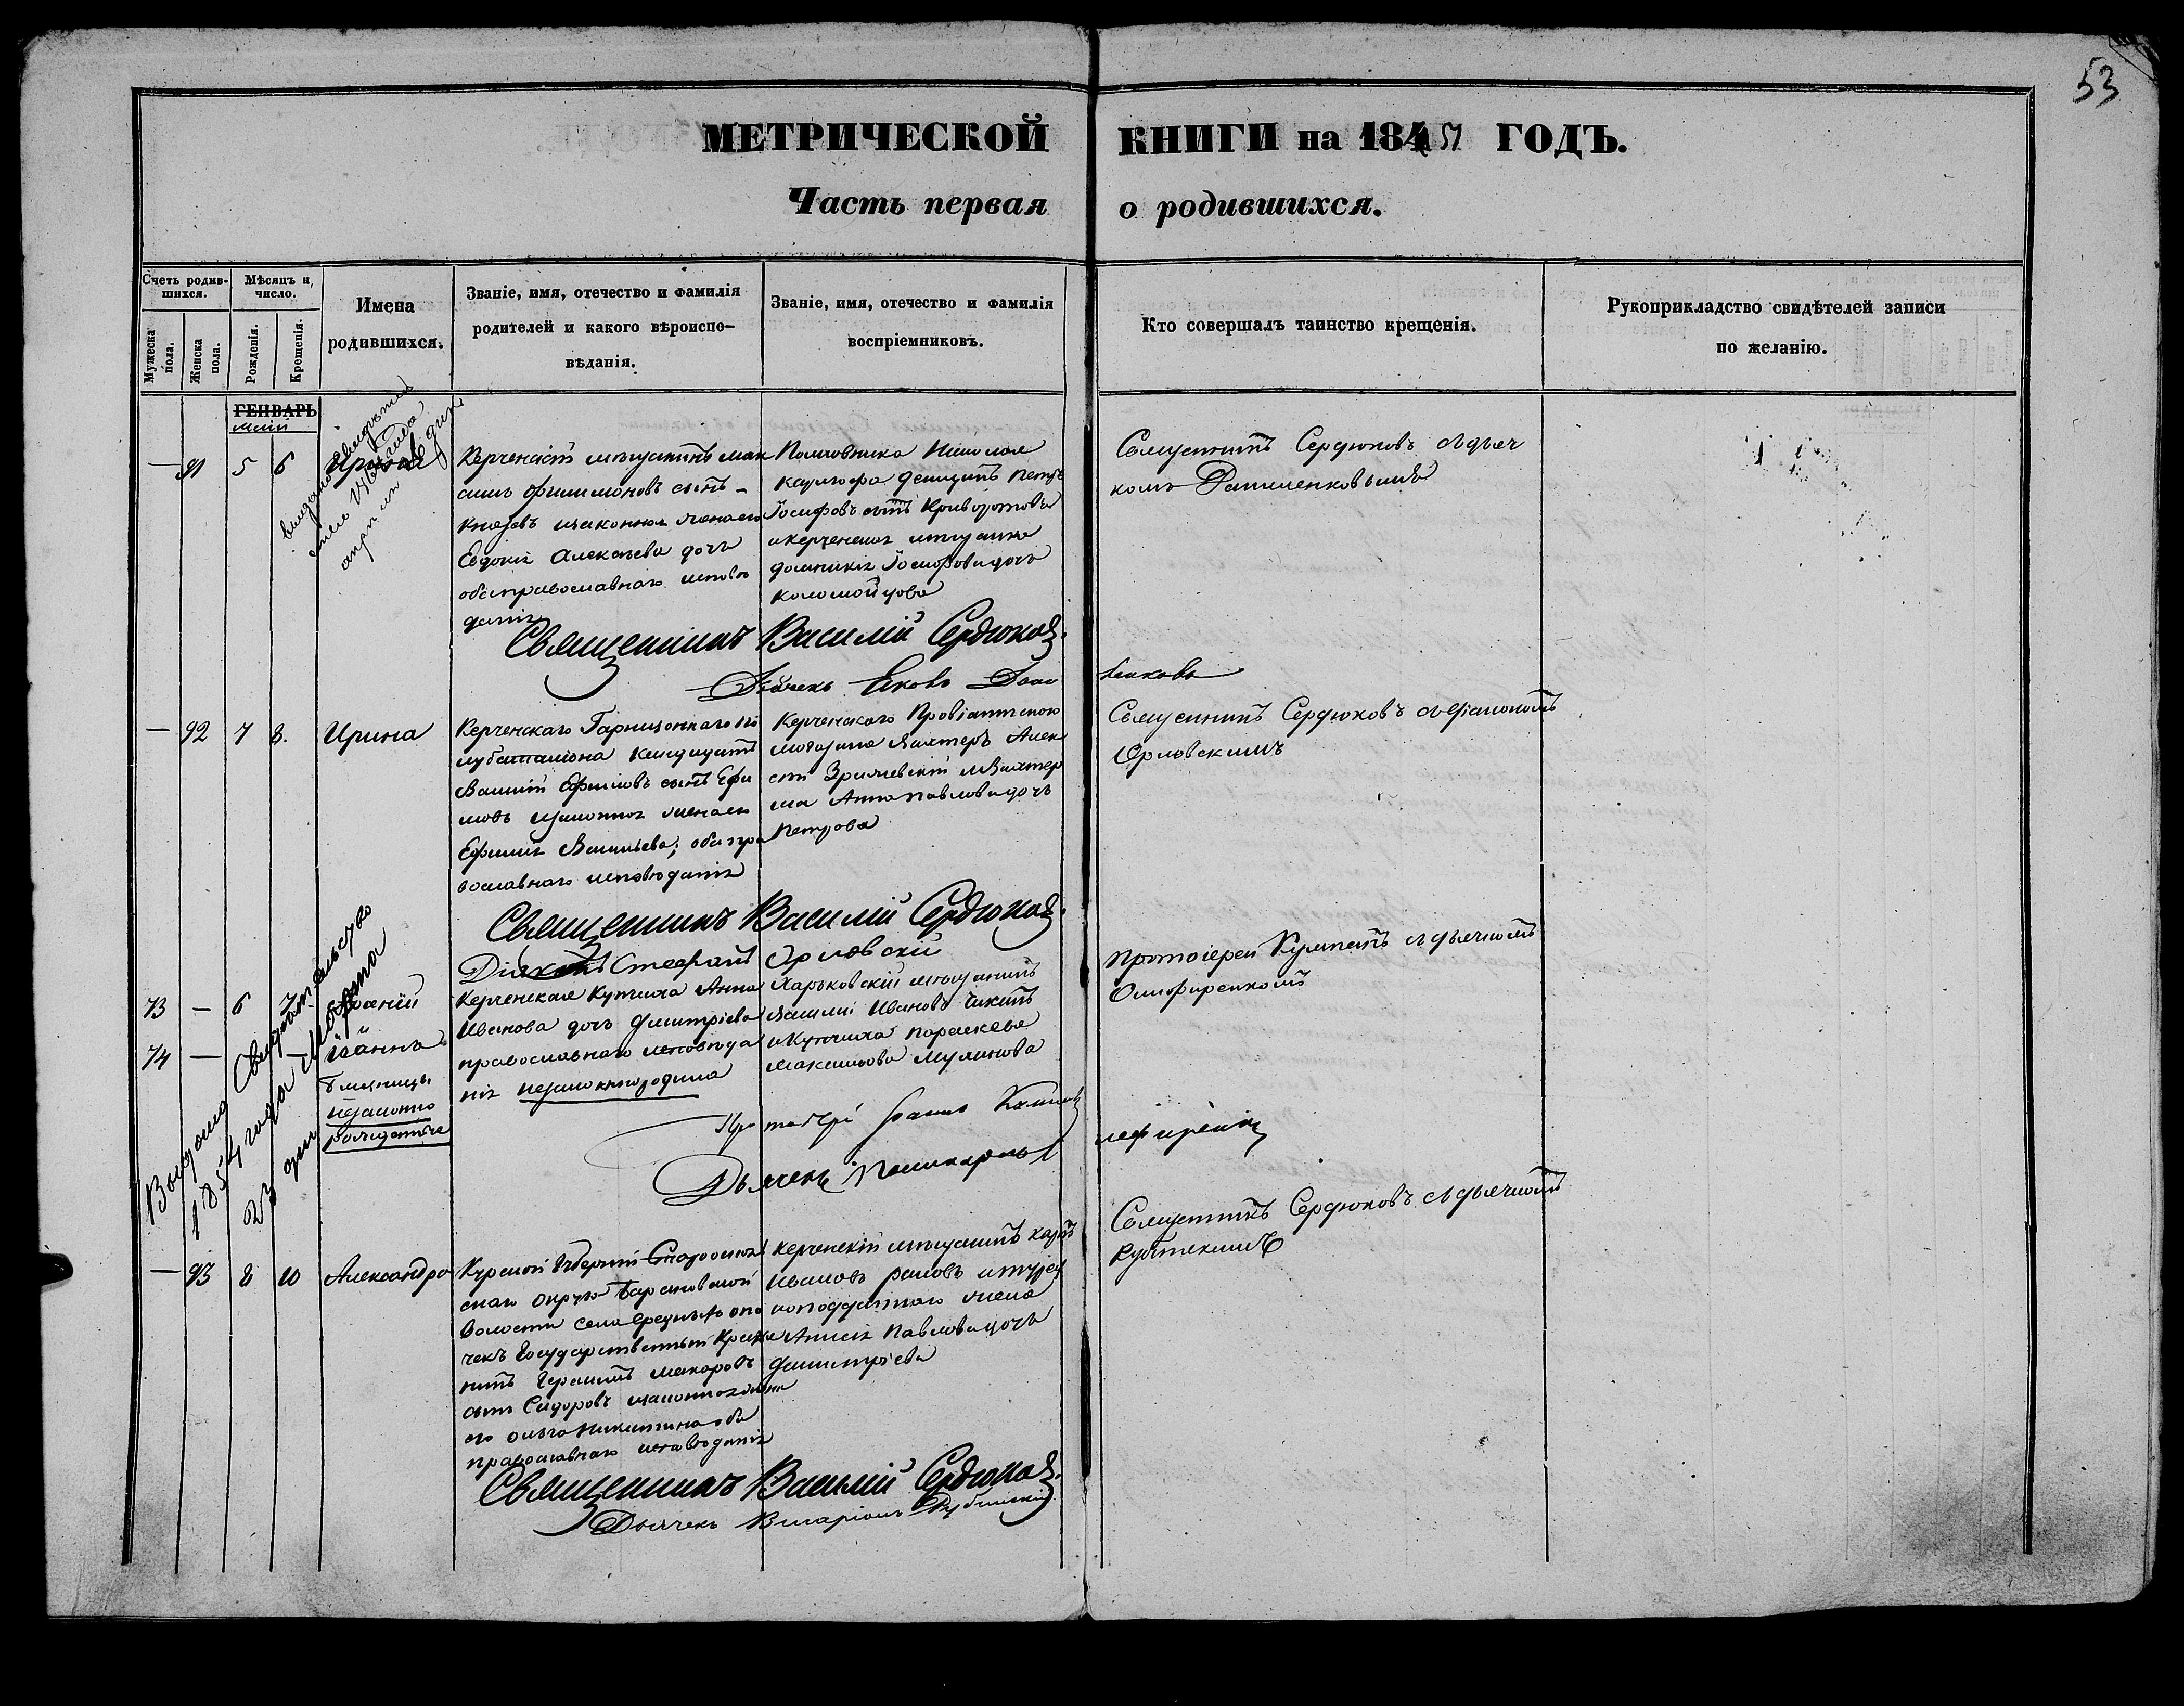 53
МЕТРИЧЕСКОЙ КНИГИ на 1851 ГОДЪ.
Часть первая о родившихся.
Счетъ родившихся.
Мужеска пола.
Женска пола.
Мѣсяцъ и число.
Рожденія.
Крещенія.
Имена
родившихся.
Званіе, имя, отечество и фамилія
родителей и какого вѣроиспо-
вѣданія.
Званіе, имя, отечество и фамилія
воспріемниковъ.
Кто совершалъ таинство крещенія.
Рукоприкладство свидѣтелей записи
по желанію.
ГЕНВАРЬ
Маій
— 91 5 6 Ирина
выдано свидѣтель
апрѣля
Керченскій мѣщанинъ Мак
симъ Филимоновъ сынъ
Князевъ изаконная женаего
Евдокія Алексѣева дочь
обаправославнаго исповѣ
данія
Полковника Николая
денщикъ Петръ
Іосифовъ сынъ Криворотовъ
икерченская мѣщанка
Іосифовадочь
Коломойцова
Священникъ Сердюковъ сдьяч
комъ Даниленковымъ
Священникъ Василій Сердюковъ.
Дьячекъ Яковъ Дани
ленковъ
— 92 7 8. Ирина
Керченскаго Гарнизоннаго по
лубаталіона Кандидатъ
Василій Ефимовъ сынъ Ефи
мовъ изаконная женаего
Ефимія Васильева; обапра
вославнаго исповѣданія
Керченскаго Провіантскаго
магазина Вахтеръ Алек
сѣй Зрилевскій иВахтер
ша Анна Павловадочь
Петрова
Священникъ Сердюковъ сдіакономъ
Орловскимъ
Священникъ Василій Сердюковъ.
Діаконъ Стефанъ Орловскій
73 — 6 7
74 — Іоаннъ
близнецы
незаконно
рожденные
Выдано Свидѣтельство
1854 года Марта
23 дня
Керченская Купчиха Анна
Иванова дочь Димитріева
православнаго исповѣда
нія незаконнородила
Харьковскій мѣщанинъ
Василій Ивановъ Чикинъ
иКупчиха Параскева
Максимова Муликова
Протоіерей Кумпанъ сдьячкомъ
Олифиренкомъ
Протоіерей Іоаннъ Кумпанъ
Дьячекъ Поликарпъ Олефиренко
— 93 8 10 Александра
Курской Губерніи Старооскол
скаго округа Барановской
Волости села Средняго Опо
чекъ Государственный Крестья
нинъ Герасимъ Макаровъ
сынъ Сидоровъ изаконнаяжена
его Ольга Никитина оба
православнаго исповѣданія
Керченскій мѣщанинъ
Ивановъ итурец
коподданнаго жена
Анисія Павловадочь
Димитріева
Священникъ Сердюковъ сдьячкомъ
Рубинскимъ
Священникъ Василій Сердюковъ.
Дьячекъ Иларіонъ Рубинскій